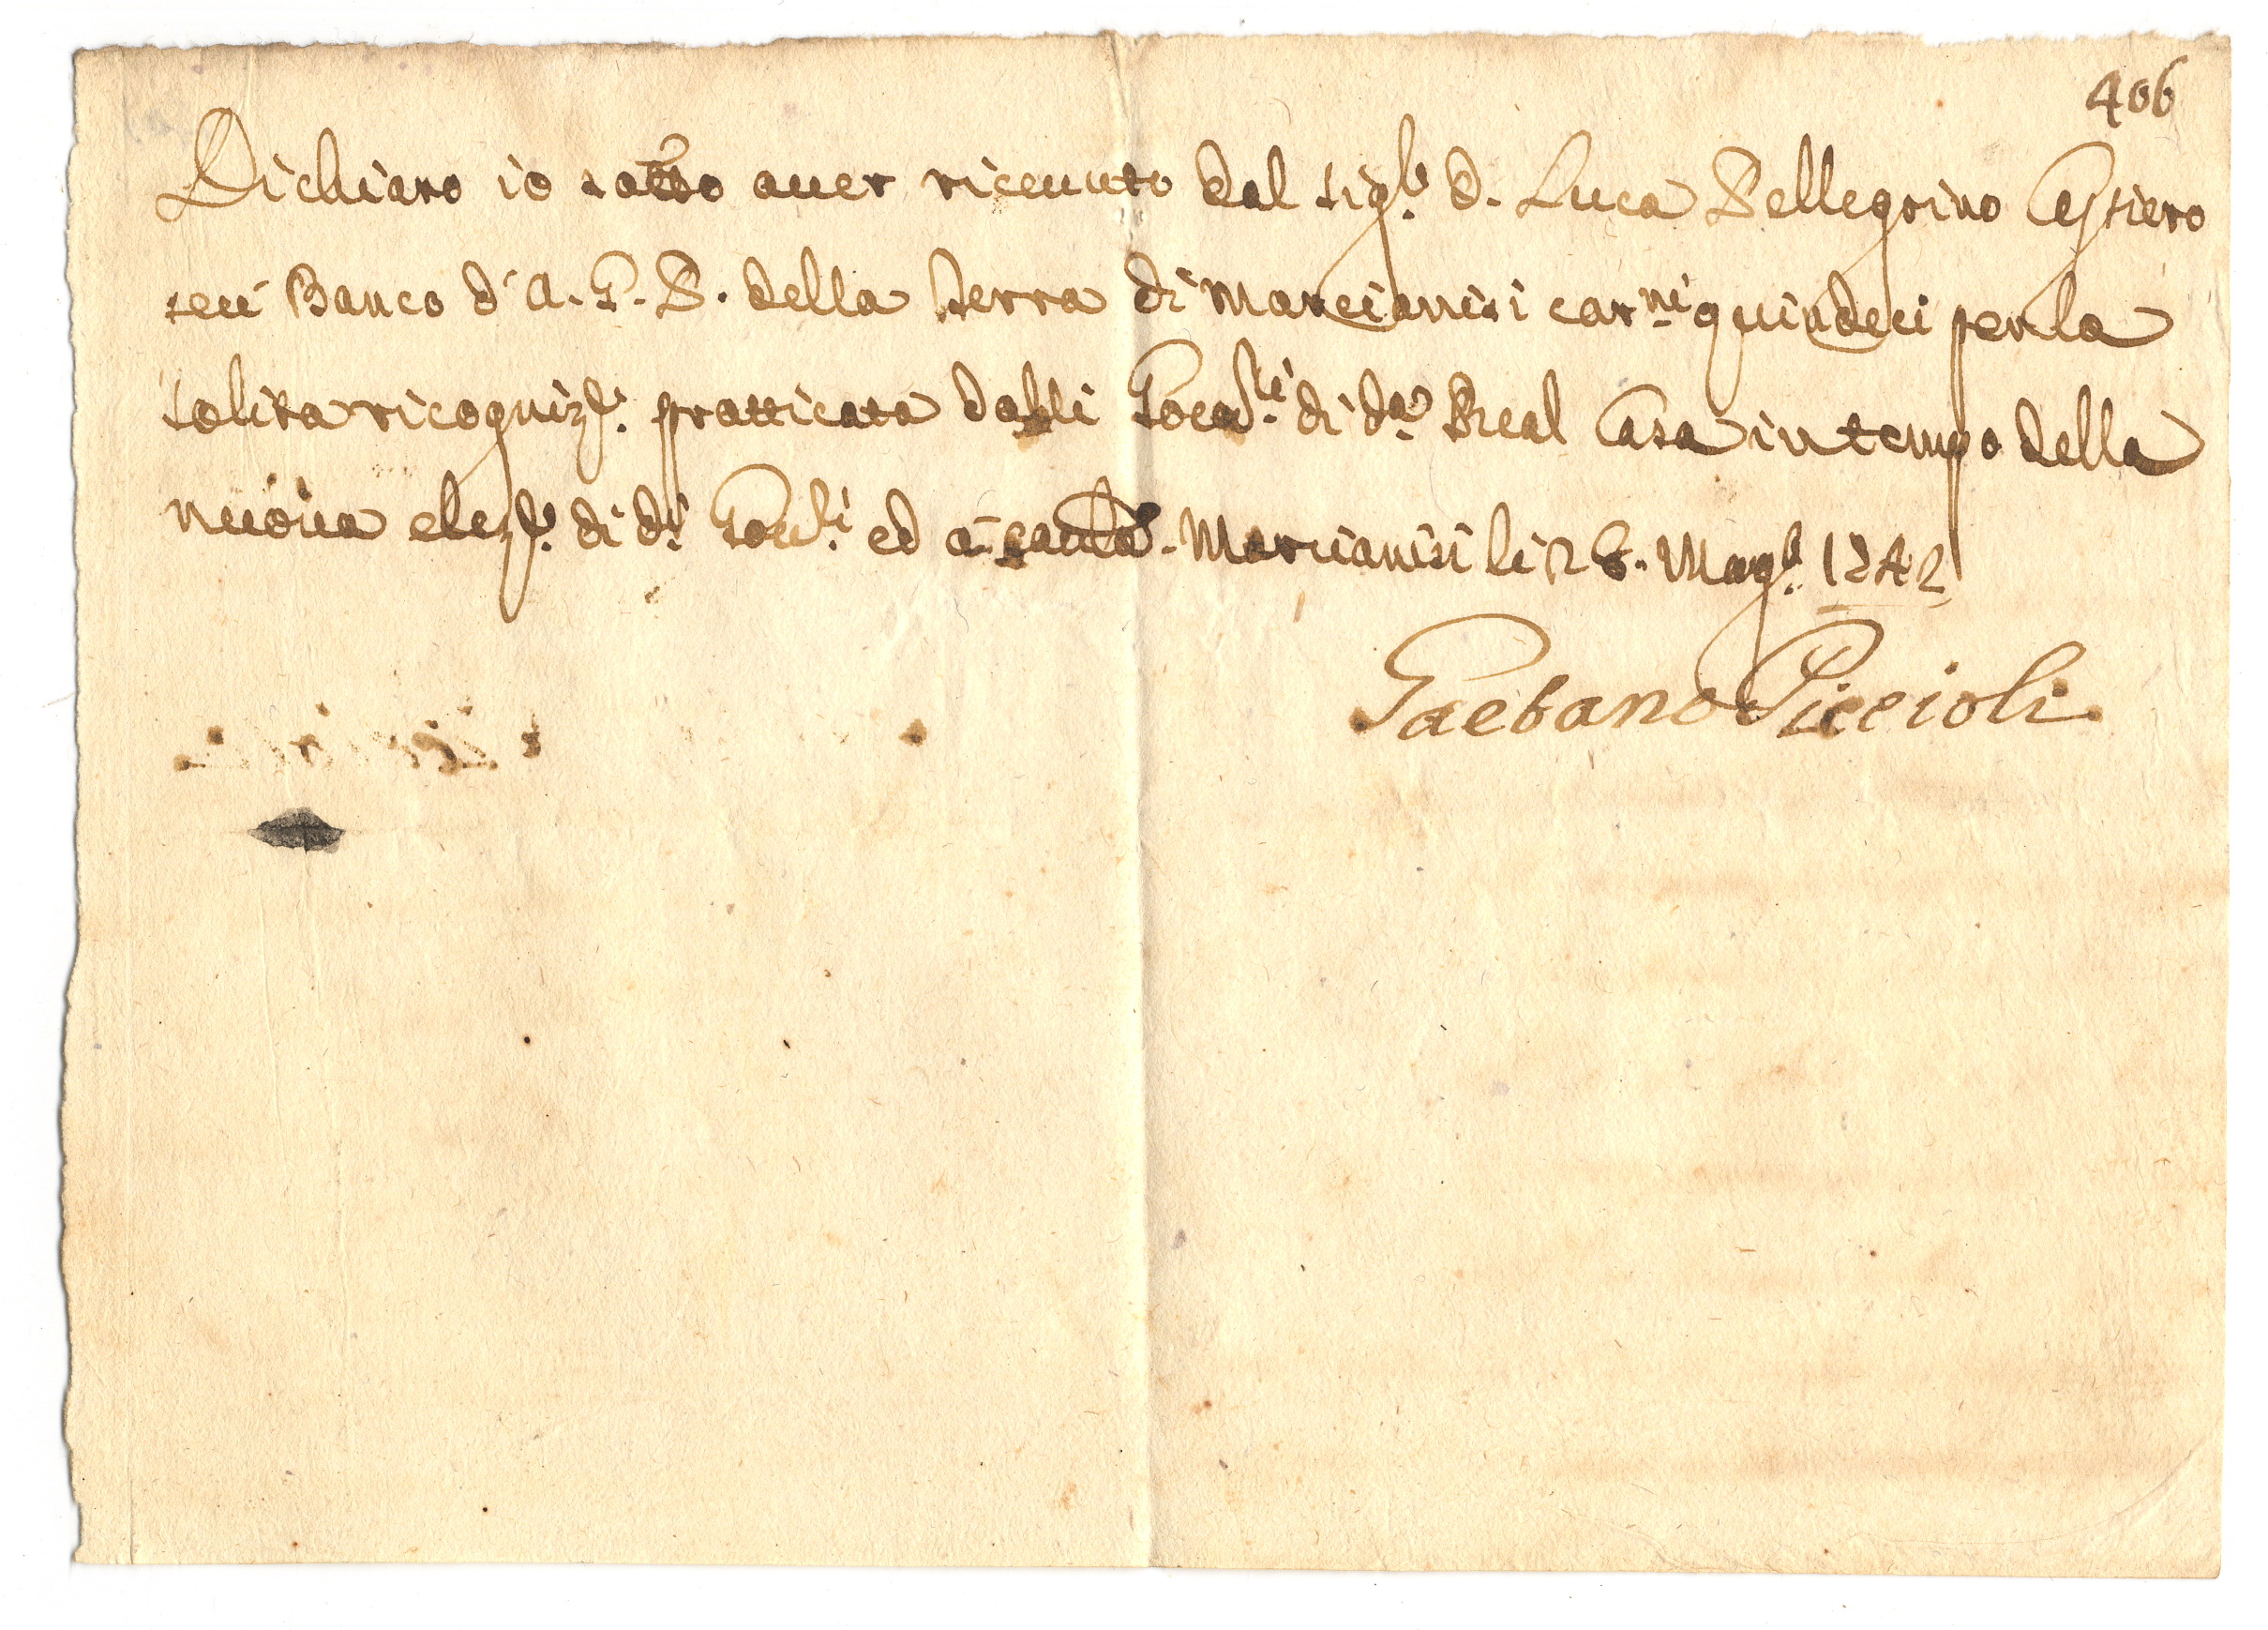 406
Dichiaro io sotto auer riceuuto dal sig.r d. Luca Pellegrino Casciero
seù Banco d' A. G. P. della terra di Marcianisi car.ni quindeci per la
solita ricogniz.e pratticata dalli Gov.ri di d.a Real Casa in tempo della
nuoua elez.e di d.i Gov.ri ed a cautela. Marcianisi li 26. Mag.o 1742
Gaetano Piccioli